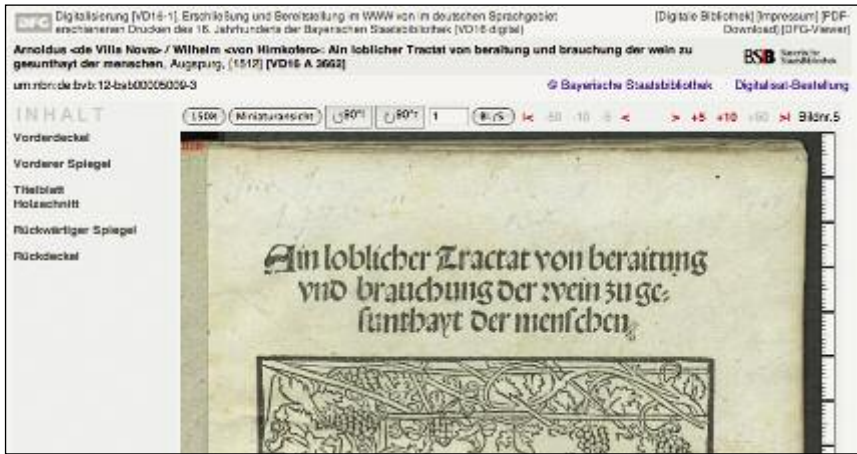 DFG
Digitalisierung [VD16-1]. Erschließung und Bereitstellung im WWW von im deutschen Sprachgebiet
erschienenen Drucken des 16. Jahrhunderts der Bayerischen Staatsbibliothek (VD16 digital)
[Digitale Bibliothek] [Impressum] [PDF-
Download] [DFG-Viewer]
Arnoldus <de Villa Nova> / Wilhelm <von Hirnkofen>: Ain loblicher Tractat von beraitung und brauchung der wein zu
gesunthayt der menschen, Augspurg, (1512) [VD16 A 3662]
BSB Bayerische
Staatsbibliothek
urn:nbn:de:bvb:12-bsb00005009-3
© Bayerische Staatsbibliothek
Digitalisat-Bestellung
INHALT
150% Miniaturansicht 90° 90° 1 Bl./S |< -50 -10 -5 < > +5 +10 +50 >| Bildnr.5
Vorderdeckel
Vorderer Spiegel
Titelblatt
Holzschnitt
Rückwärtiger Spiegel
Rückdeckel
Ain loblicher Tractat von beraitung
vnd brauchung der wein zu ge-
sunthayt der menschen